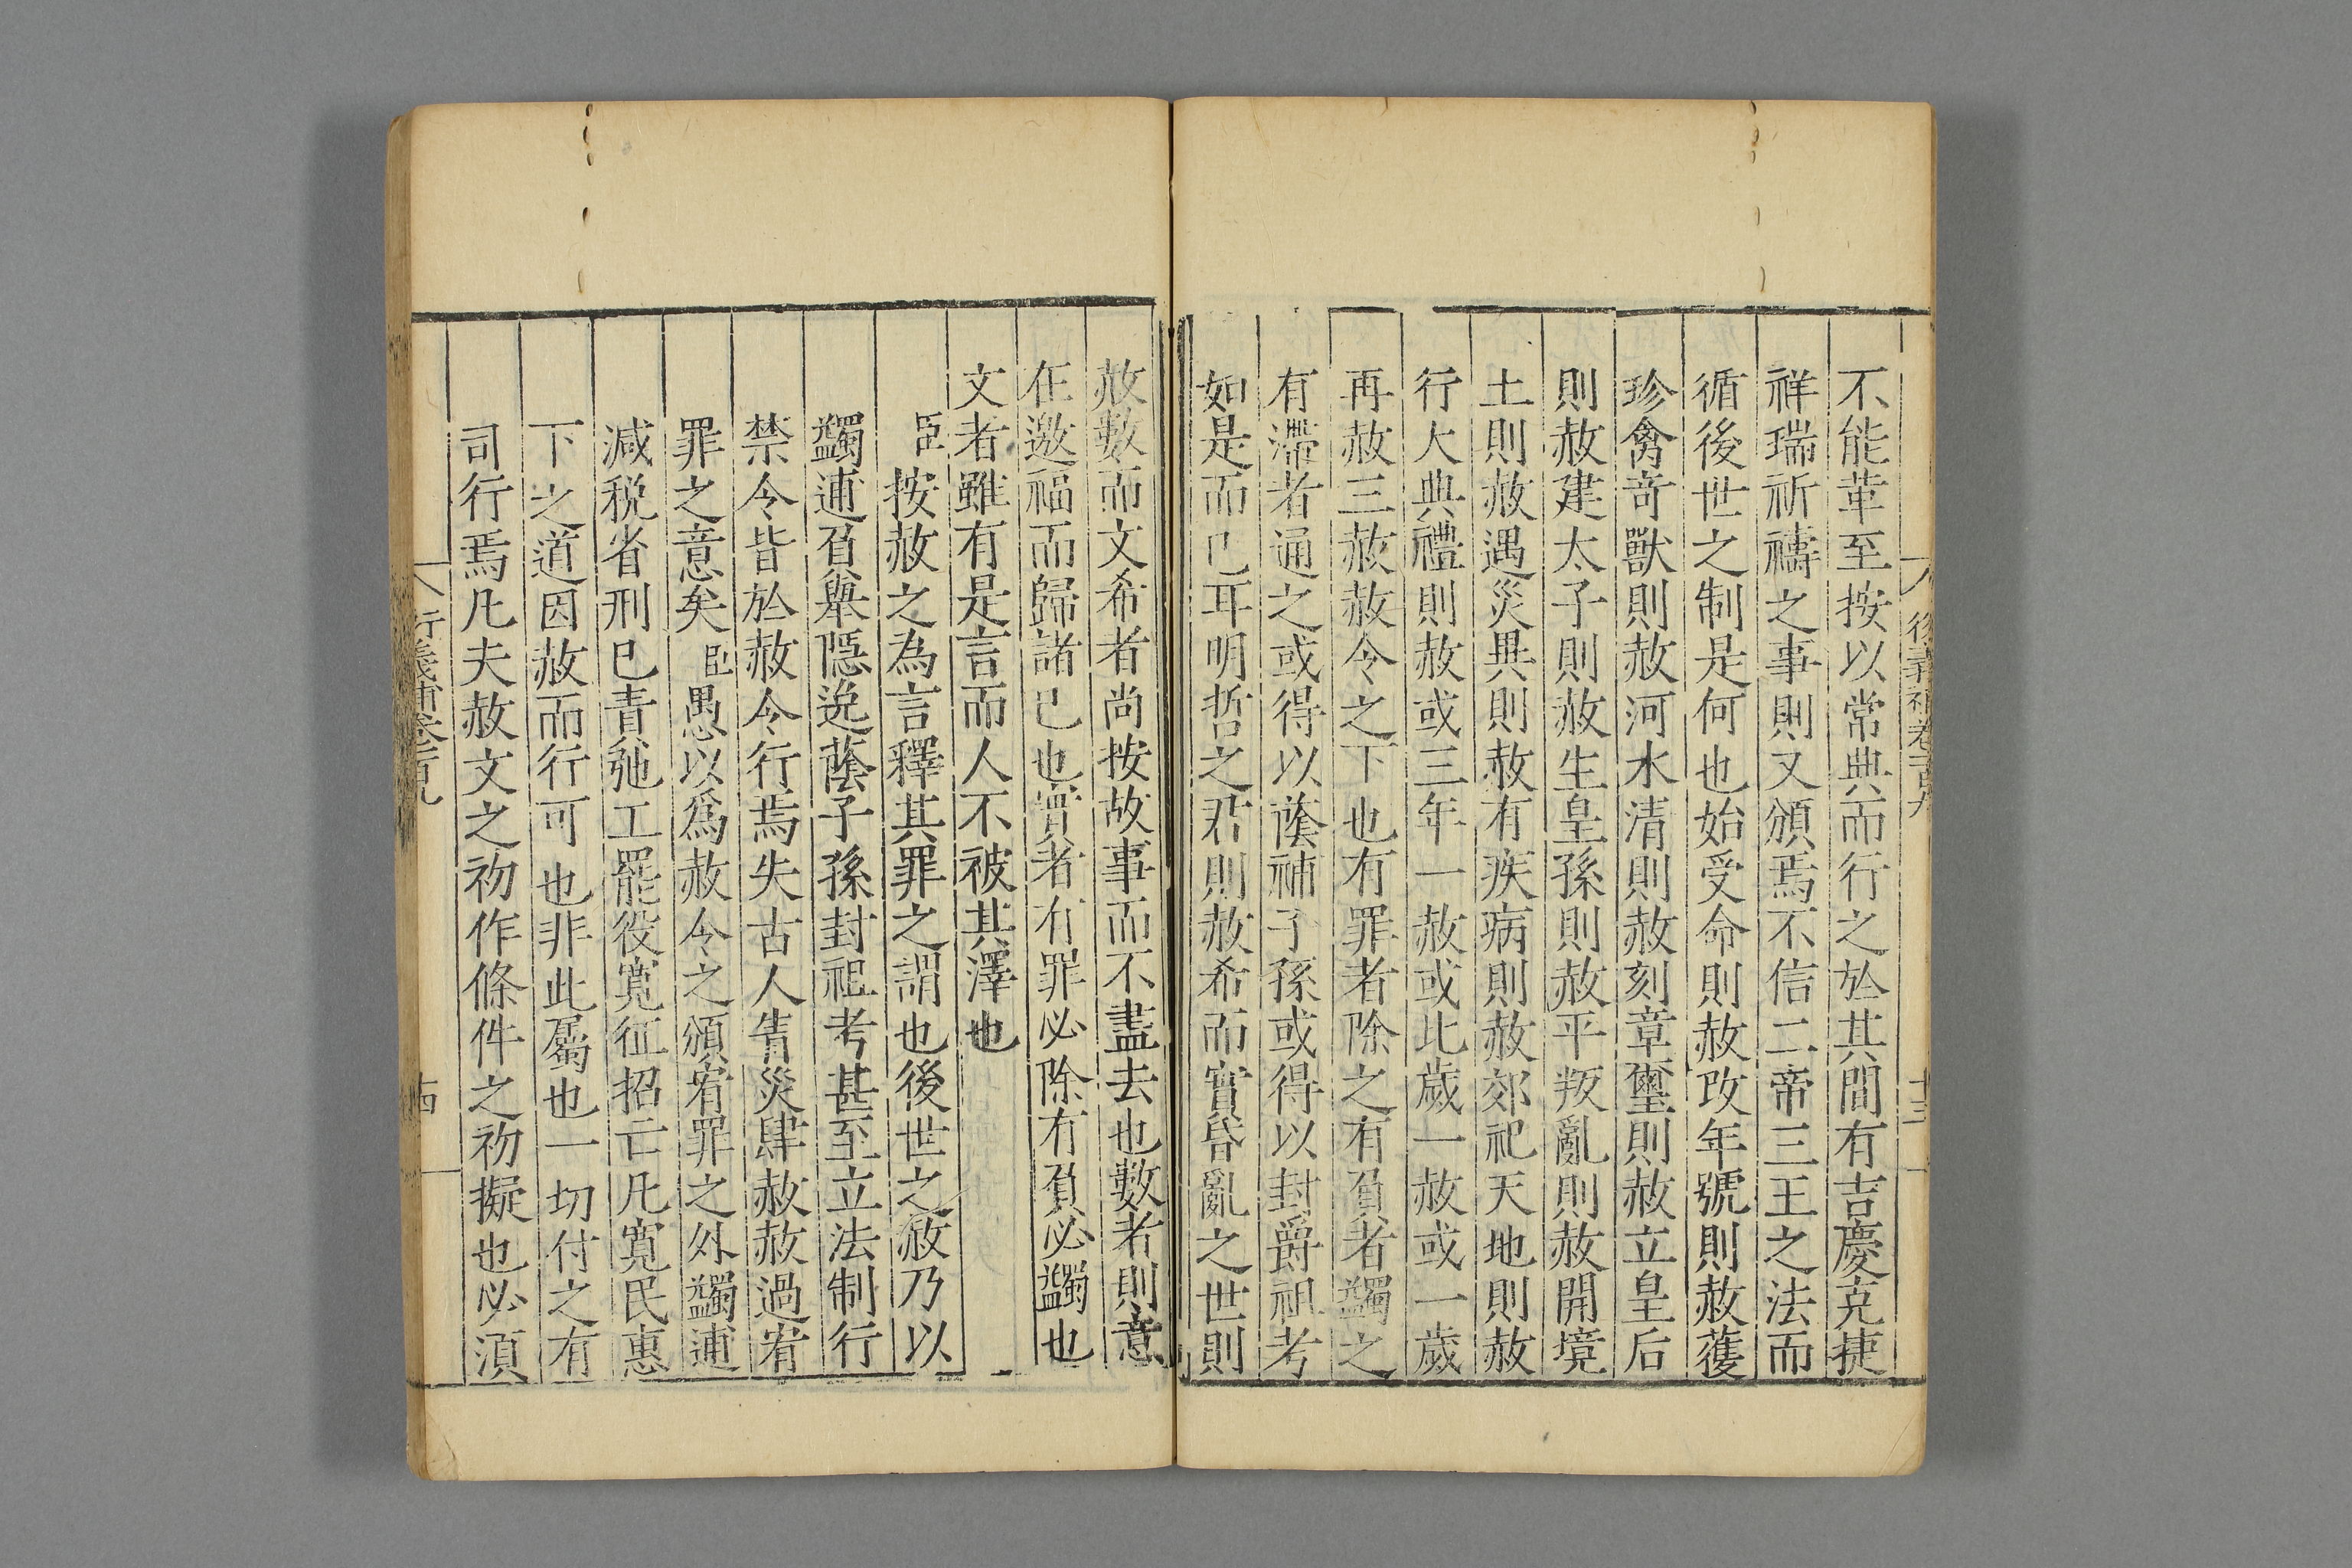 不能革至按以常典而行之於其間有吉慶克捷
祥瑞祈禱之事則又頒焉不信二帝三王之法而
循後世之制是何也始受命則赦改年號則赦獲
珍禽奇獸則赦河水清則赦刻章璽則赦立皇后
則赦建太子則赦生皇孫則赦平叛亂則赦開境
土則赦遇災異則赦有疾病則赦郊祀天地則赦
行大典禮則赦或三年一赦或比歲一赦或一歲
再赦三赦赦令之下也有罪者除之有負者蠲之
有滯者通之或得以蔭補子孫或得以封爵祖考
如是而已耳明哲之君則赦希而實昏亂之世則
赦數而文希者尚按故事而不盡去也數者則意
在邀福而歸諸已也實者有罪必除有負必蠲也
文者雖有是言而人不被其澤也
臣按赦之為言釋其罪之謂也後世之赦乃以
蠲逋負舉隱逸蔭子孫封祖考甚至立法制行
禁令皆於赦令行焉失古人眚災肆赦赦過宥
罪之意矣臣愚以為赦令之頒宥罪之外蠲逋
減稅省刑已責弛工罷役寬征招亡凡寬民惠
下之道因赦而行可也非此屬也一切付之有
司行焉凡夫赦文之初作條件之初擬也必須
行義補卷一百九
十四